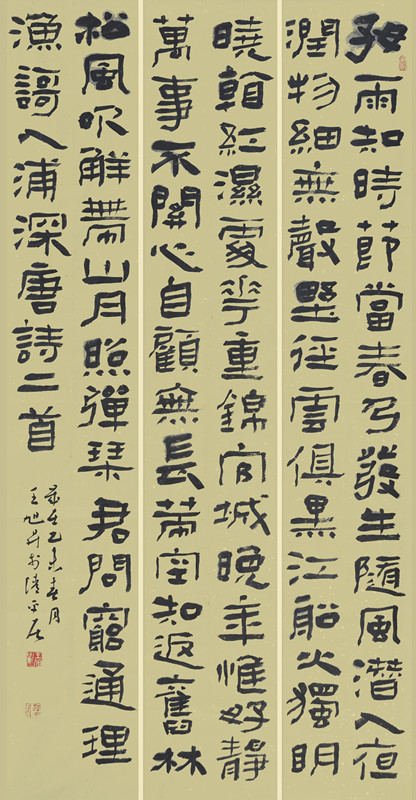 好雨知時節當春乃發生隨風潛入夜
潤物細無聲野徑雲俱黑江船火獨明
曉看紅濕處花重錦官城晚年惟好靜
萬事不關心自顧無長策空知返舊林
松風吹解帶山月照彈琴君問窮通理
漁謌入浦深唐詩二首
歲在己亥春月
王旭升於清平居